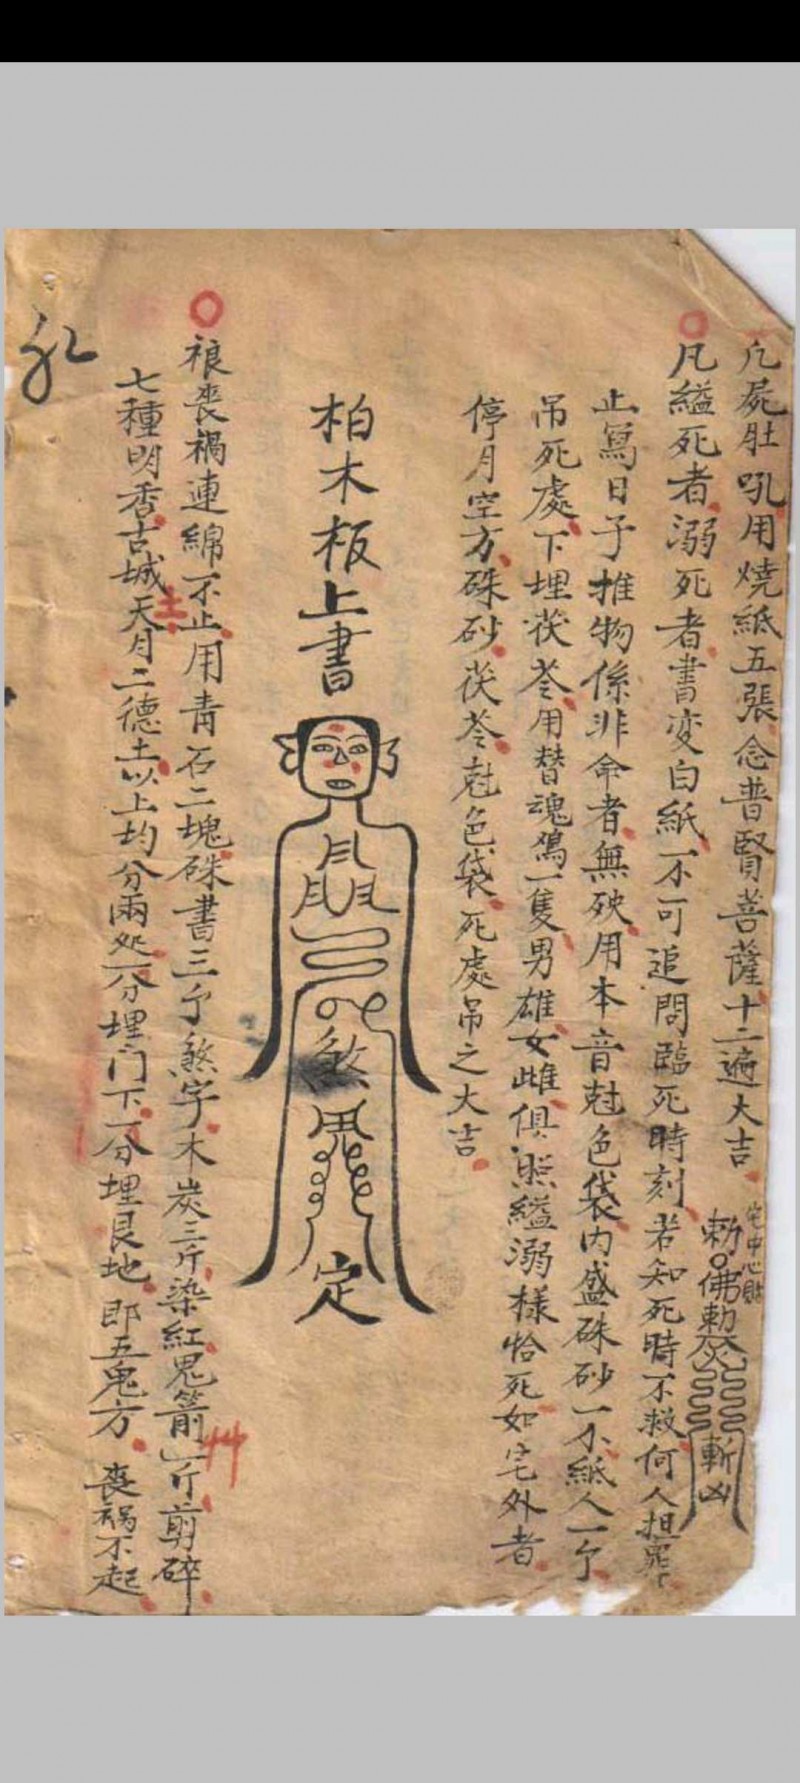 凡屍肚吼用燒紙五張念普賢菩薩十二遍大吉
宅中心貼
勅佛勅
斬凶
凡縊死者溺死者書变白紙不可追問臨死時刻若知死時不救何人担罪
止寫日子推物係非命者無殃用本音尅色袋内盛硃砂一不紙人一个
吊死處下埋茯苓用替魂鴉一隻男雄女雌俱照縊溺樣恰死如宅外者
停月空方硃砂茯苓尅色袋死處吊之大吉
柏木板上書
煞鬼
定
禳喪禍連綿不止用青石二塊硃書三个煞字木炭三斤染紅鬼箭一斤剪碎
七種明香古城土天月二德土以上均分兩处一分埋门下一分埋艮地即五鬼方喪禍不起